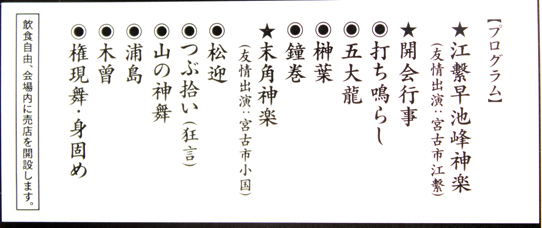 【プログラム】
★江繋早池峰神楽
(友情出演：宮古市江繋)
★開会行事
◉打ち鳴らし
◉五大龍
◉榊葉
◉鐘巻
★末角神楽
(友情出演：宮古市小国)
◉松迎
◉つぶ拾い(狂言)
◉山の神舞
◉浦島
◉木曽
◉権現舞・身固め
飲食自由、会場内に売店を開設します。